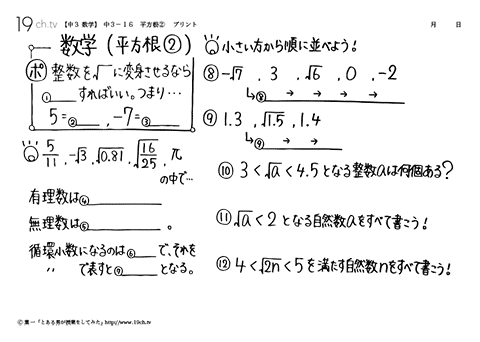 19ch.tv 【中3 数学】 中3-16 平方根② プリント 月 日
数学(平方根②)
ポ 整数を√に変身させるなら
① すればいい。つまり…
5=② , -7=③
5/11 , -√3 , √0.81 , √(16/25) , π
の中で…
有理数は④
無理数は⑤ 。
循環小数になるのは⑥ で、それを
〃 で表すと⑦ となる。
小さい方から順に並べよう!
⑧ -√7 , 3 , √6 , 0 , -2
↳⑧ → → → →
⑨ 1.3 , √1.5 , 1.4
↳⑨ → →
⑩ 3<√a<4.5となる整数aは何個ある?
⑪ √a<2となる自然数aをすべて書こう!
⑫ 4<√2n<5を満たす自然数nをすべて書こう!
© 葉一「とある男が授業をしてみた」http://www.19ch.tv